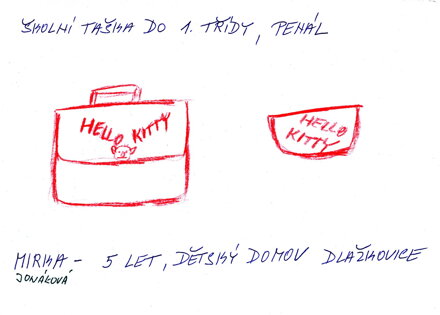 ŠKOLNÍ TAŠKA DO 1. TŘÍDY, PENÁL
HELLO KITTY
HELLO
KITTY
MIRKA - 5 LET, DĚTSKÝ DOMOV DLAŽKOVICE
JONÁKOVÁ